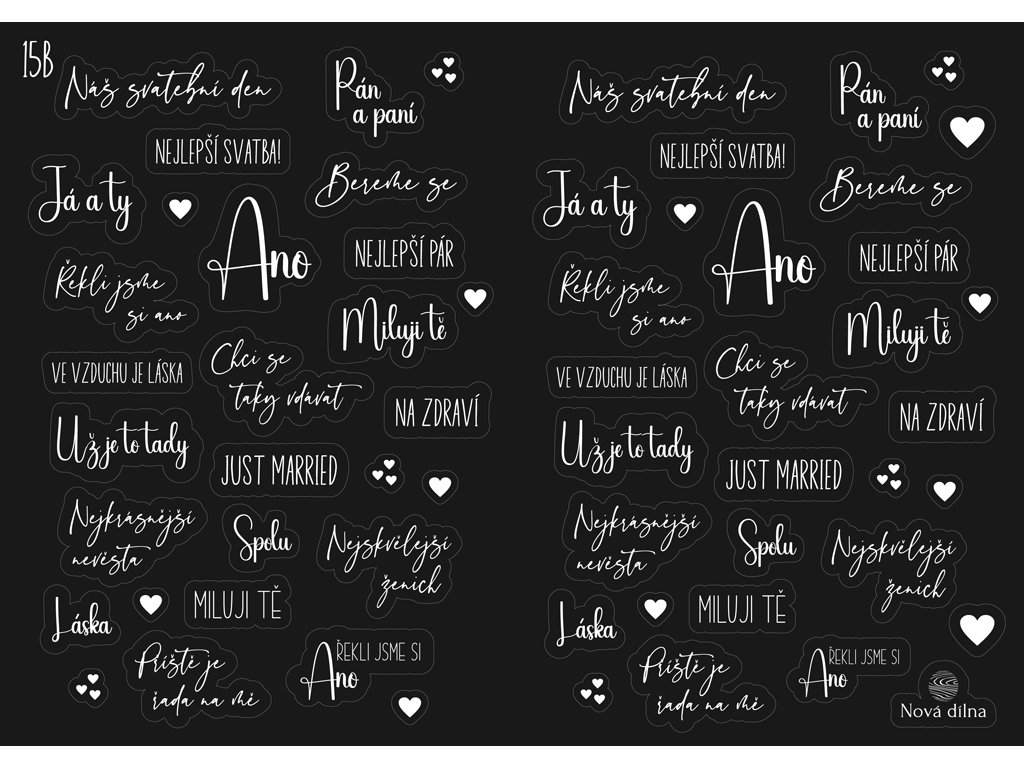 15B
Náš svatební den
Pán
a paní
NEJLEPŠÍ SVATBA!
Já a ty
Bereme se
Ano
NEJLEPŠÍ PÁR
Řekli jsme
si ano
Miluji tě
VE VZDUCHU JE LÁSKA
Chci se
taky vdávat
NA ZDRAVÍ
Už je to tady
JUST MARRIED
Nejkrásnější
nevěsta
Spolu
Nejskvělejší
ženich
Láska
MILUJI TĚ
Příště je
řada na mě
ŘEKLI JSME SI
Ano
Náš svatební den
Pán
a paní
NEJLEPŠÍ SVATBA!
Já a ty
Bereme se
Ano
NEJLEPŠÍ PÁR
Řekli jsme
si ano
Miluji tě
VE VZDUCHU JE LÁSKA
Chci se
taky vdávat
NA ZDRAVÍ
Už je to tady
JUST MARRIED
Nejkrásnější
nevěsta
Spolu
Nejskvělejší
ženich
Láska
MILUJI TĚ
Příště je
řada na mě
ŘEKLI JSME SI
Ano
Nová dílna